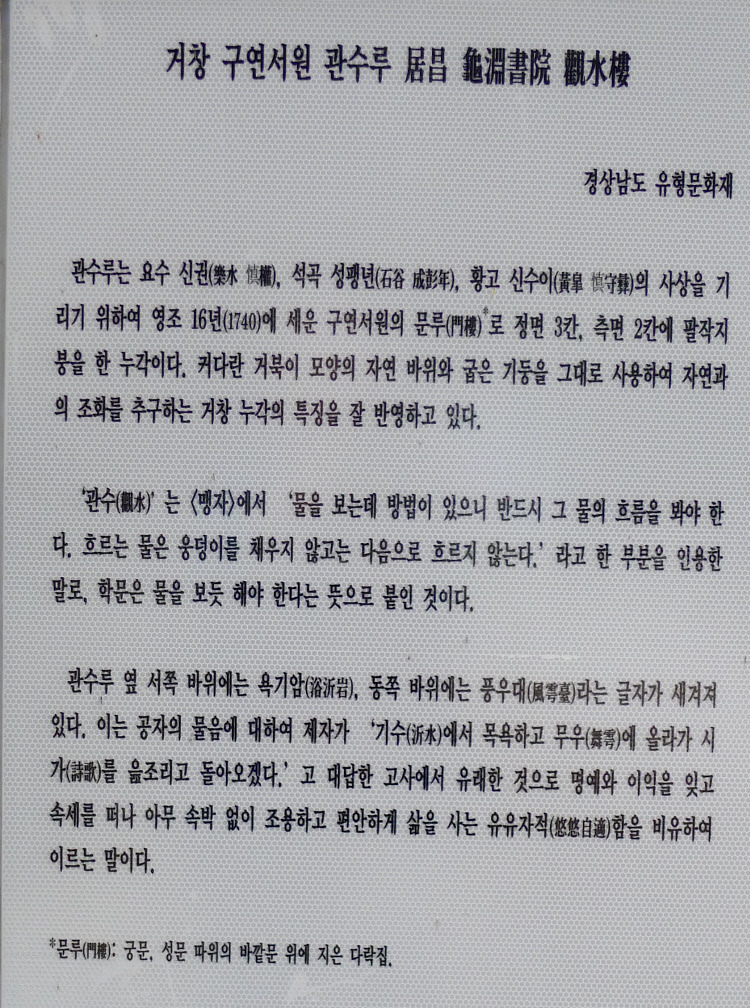 거창 구연서원 관수루 居昌 龜淵書院 觀水樓
경상남도 유형문화재
관수루는 요수 신권(樂水 愼權), 석곡 성팽년(石谷 成彭年), 황고 신수이(黃皐 愼守彝)의 사상을 기
리기 위하여 영조 16년(1740)에 세운 구연서원의 문루(門樓)*로 정면 3칸, 측면 2칸에 팔작지
붕을 한 누각이다. 커다란 거북이 모양의 자연 바위와 굽은 기둥을 그대로 사용하여 자연과
의 조화를 추구하는 거창 누각의 특징을 잘 반영하고 있다.
‘관수(觀水)’는 〈맹자〉에서 ‘물을 보는데 방법이 있으니 반드시 그 물의 흐름을 봐야 한
다. 흐르는 물은 웅덩이를 채우지 않고는 다음으로 흐르지 않는다.’ 라고 한 부분을 인용한
말로, 학문은 물을 보듯 해야 한다는 뜻으로 붙인 것이다.
관수루 옆 서쪽 바위에는 욕기암(浴沂岩), 동쪽 바위에는 풍우대(風雩臺)라는 글자가 새겨져
있다. 이는 공자의 물음에 대하여 제자가 ‘기수(沂水)에서 목욕하고 무우(舞雩)에 올라가 시
가(詩歌)를 읊조리고 돌아오겠다.’고 대답한 고사에서 유래한 것으로 명예와 이익을 잊고
속세를 떠나 아무 속박 없이 조용하고 편안하게 삶을 사는 유유자적(悠悠自適)함을 비유하여
이르는 말이다.
*문루(門樓): 궁문, 성문 따위의 바깥문 위에 지은 다락집.